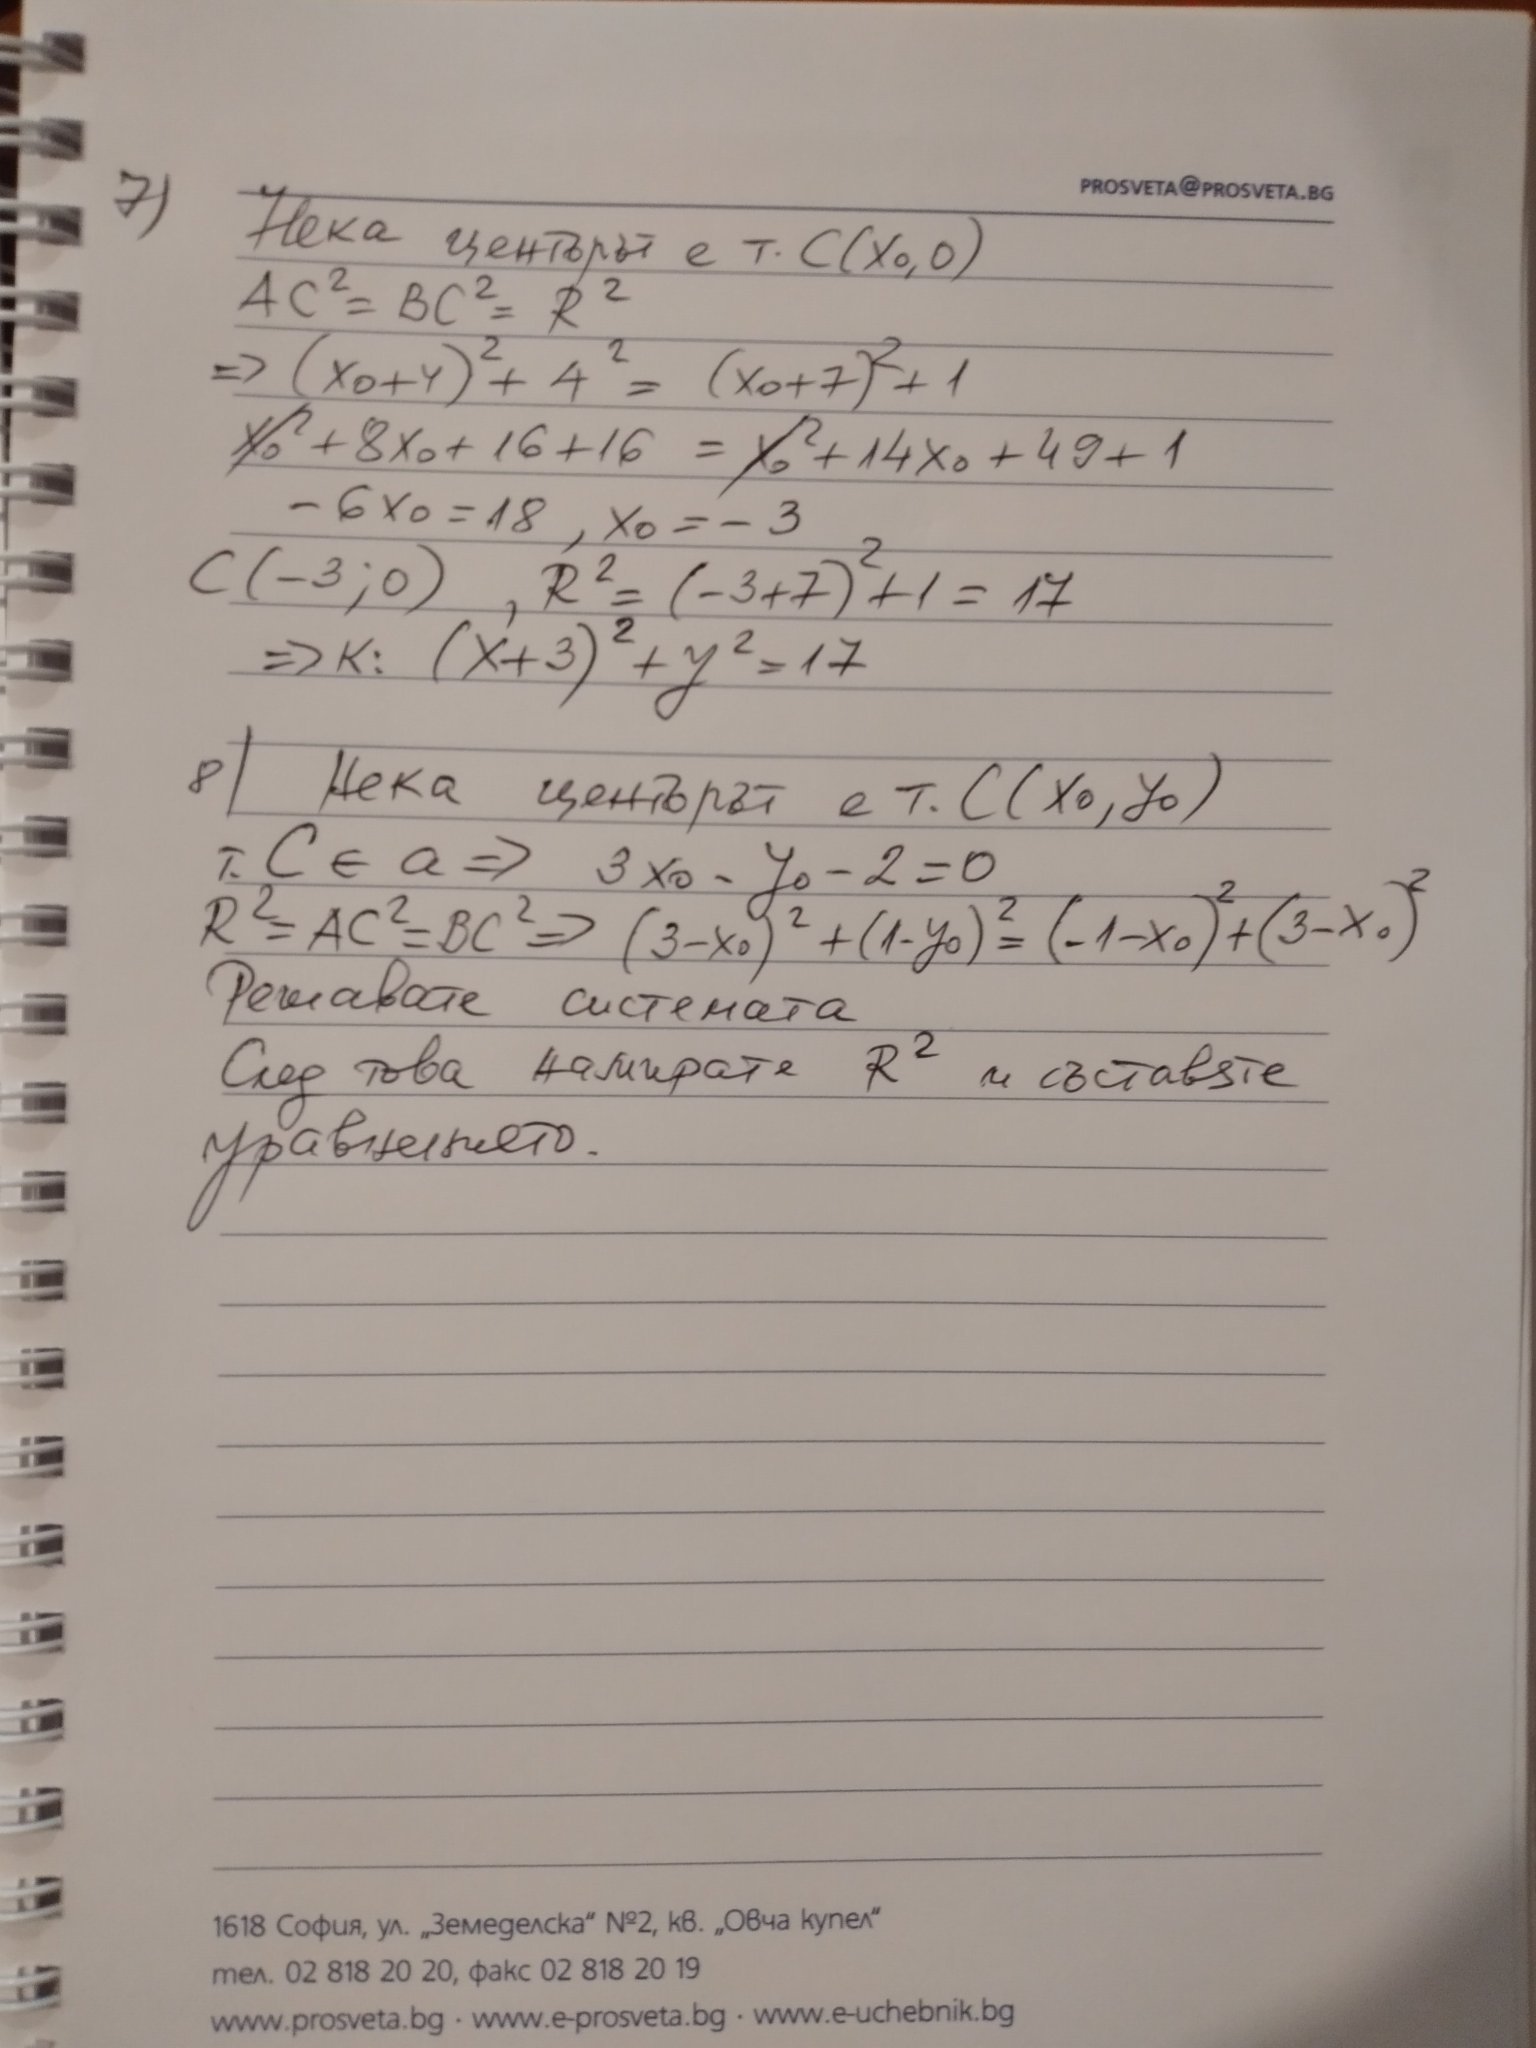 PROSVETA@PROSVETA.BG
7) Нека центърът е т. C(x₀,0)
AC² = BC² = R²
=> (x₀+4)² + 4² = (x₀+7)² + 1
x₀² + 8x₀ + 16 + 16 = x₀² + 14x₀ + 49 + 1
-6x₀ = 18, x₀ = -3
C(-3;0), R² = (-3+7)² + 1 = 17
=> K: (x+3)² + y² = 17
8) Нека центърът е т. C(x₀,y₀)
т. C ∈ a => 3x₀ - y₀ - 2 = 0
R² = AC² = BC² => (3-x₀)² + (1-y₀)² = (-1-x₀)² + (3-x₀)²
Решавате системата
След това намирате R² и съставяте
уравнението.
1618 София, ул. „Земеделска“ №2, кв. „Овча купел“
тел. 02 818 20 20, факс 02 818 20 19
www.prosveta.bg · www.e-prosveta.bg · www.e-uchebnik.bg